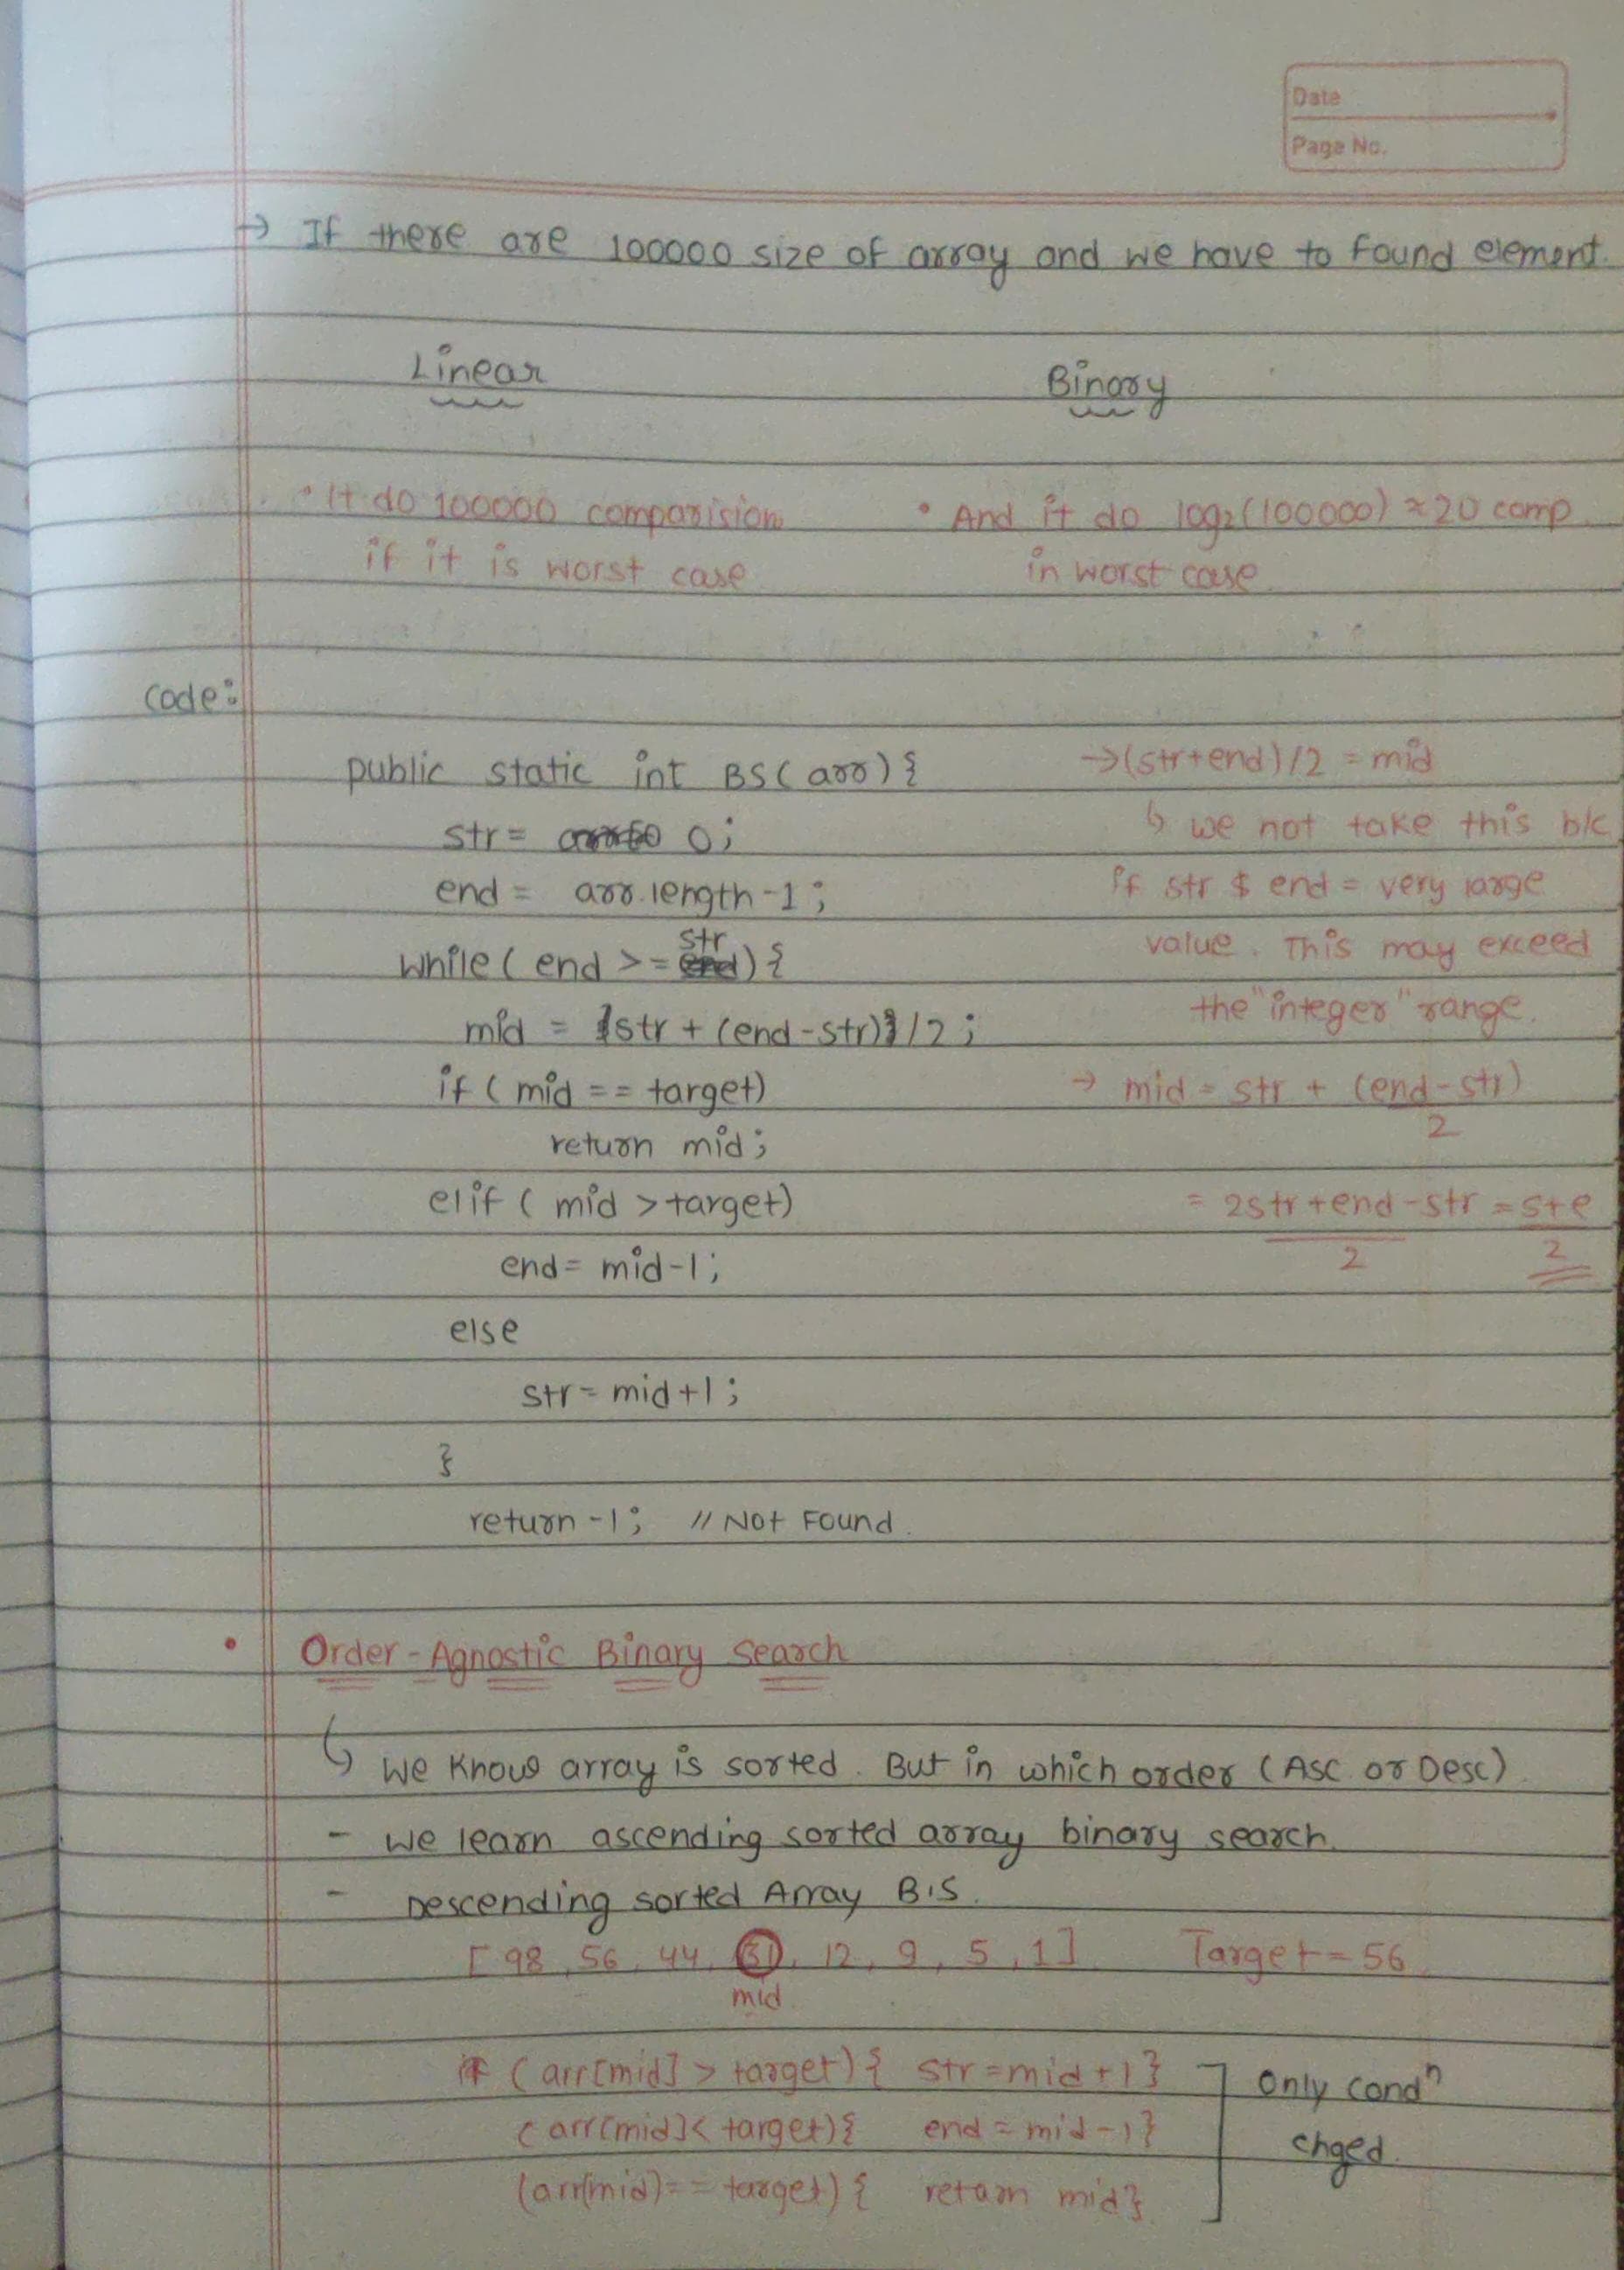 Date
Page No.
→ If there are 100000 size of array and we have to found element.
Linear
Binary
• It do 100000 comparision
if it is worst case
• And it do log₂(100000) ≈ 20 comp
in worst case
Code:
public static int BS(arr){
str = 0;
end = arr.length-1;
while( end >= str){
mid = {str + (end-str)}/2;
if ( mid == target)
return mid;
elif ( mid > target)
end = mid-1;
else
str = mid+1;
}
return -1; // Not Found.
→ (str+end)/2 = mid
↳ we not take this b/c
if str $ end = very large
value. This may exceed
the "integer" range.
→ mid = str + (end-str)
2
= 2str+end-str = s+e
2 2
• Order-Agnostic Binary Search
↳ We Know array is sorted. But in which order (Asc or Desc)
- We learn ascending sorted array binary search.
- Descending sorted Array B.S.
[98, 56, 44, 31, 12, 9, 5, 1] Target = 56
mid
if (arr[mid] > target){ str = mid+1}
(arr[mid] < target){ end = mid-1}
(arr(mid) == target){ return mid}
Only condⁿ
chged.